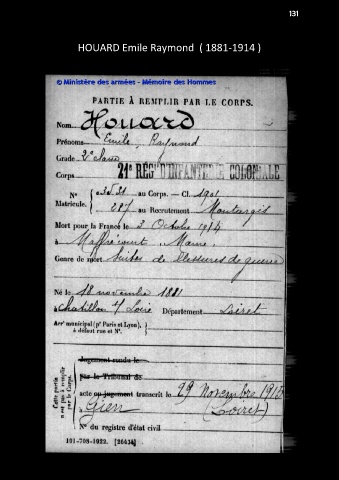 131
HOUARD Emile Raymond ( 1881-1914 )
© Ministère des armées - Mémoire des Hommes
PARTIE À REMPLIR PAR LE CORPS.
Nom Houard
Prénoms Emile Raymond
Grade 2e
Corps 21e REGt D'INFANTERIE COLONIALE
N° Matricule. au Corps. — Cl. 1901
227 au Recrutement Montargis
Mort pour la France le 3 Octobre 1914
à Maffrecourt Marne
Genre de mort Suites de Blessures de guerre
Né le 18 novembre 1881
à Chatillon s/ Loire Département Loiret
Arr° municipal (p° Paris et Lyon),
à défaut rue et N°.
Cette partie n'est pas à remplir par le Corps.
Jugement rendu le
par le Tribunal de
acte ou jugement transcrit le 29 Novembre
à Gien (Loiret)
N° du registre d'état civil
101-708-1922. [26434]